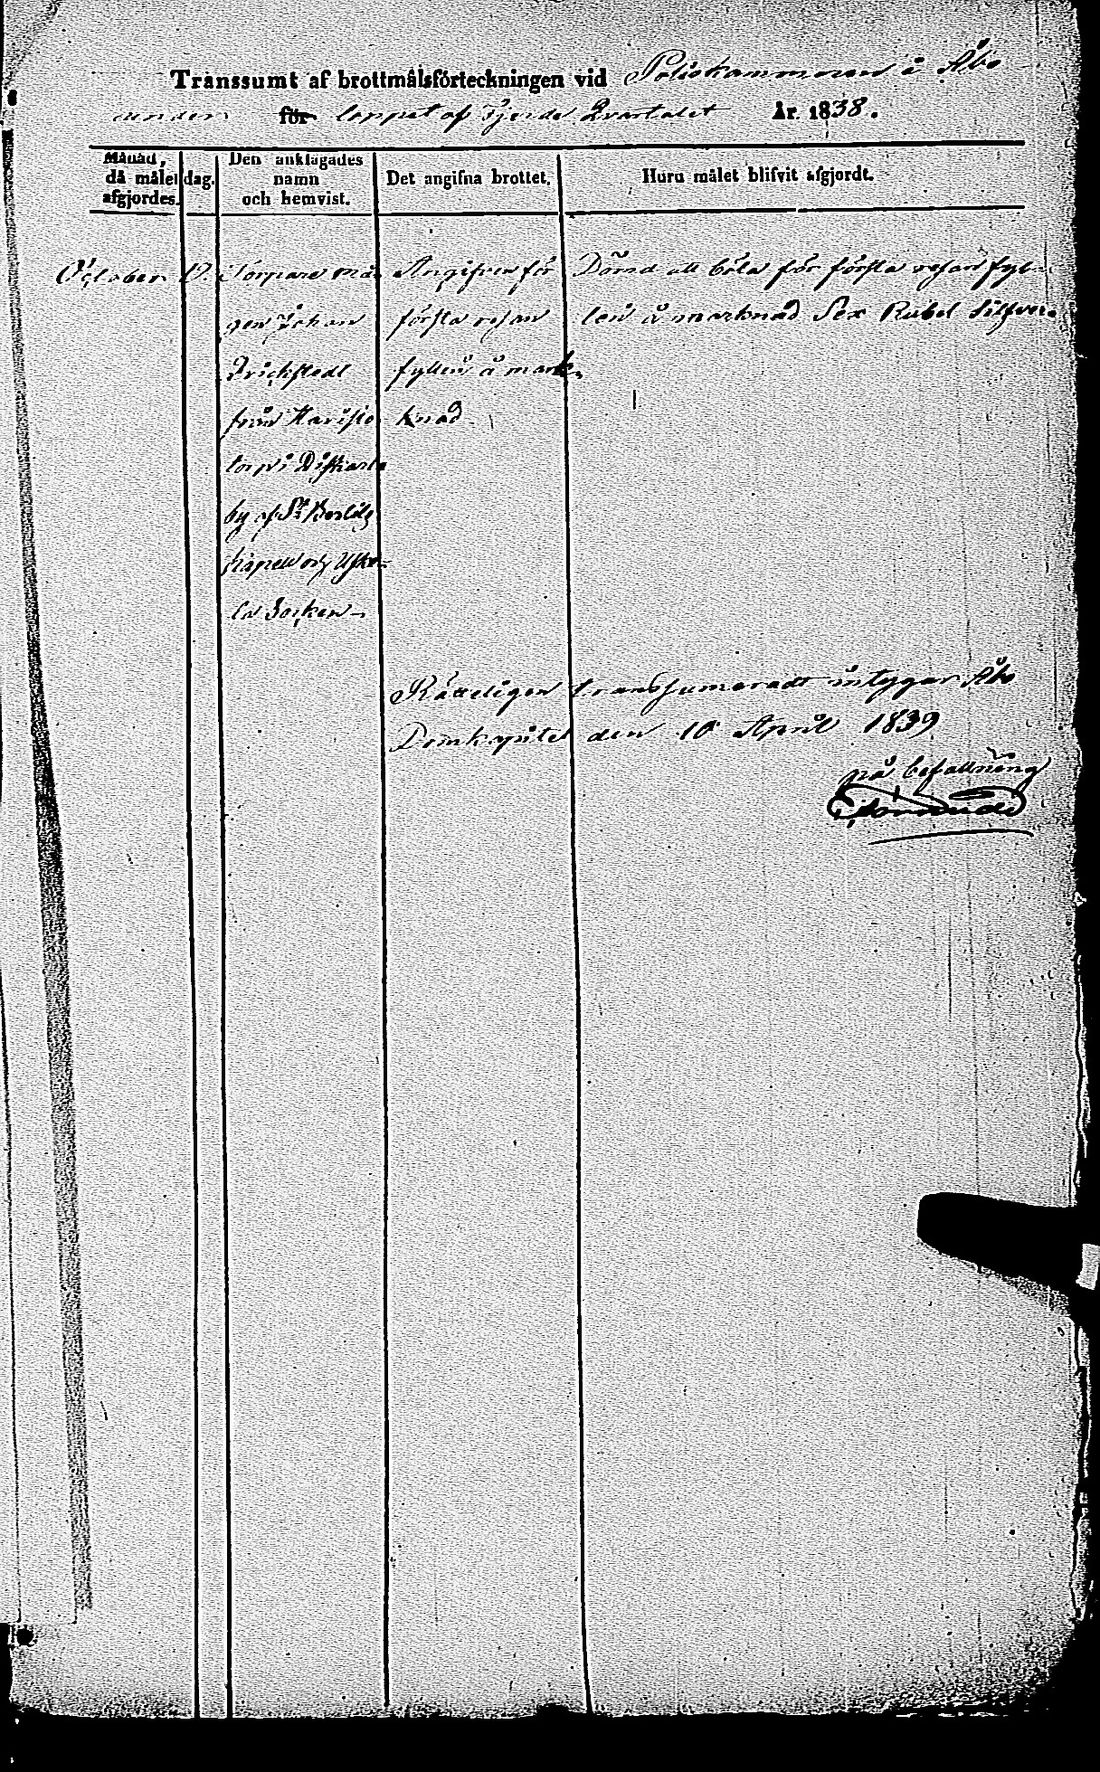 Transsumt af brottmålsförteckningen vid Poliskammaren i Åbo
under för loppet af Fjerde Qvartalet År. 1838.
Månad, då målet afgjordes.
dag.
Den anklagades namn och hemvist.
Det angifna brottet.
Huru målet blifvit afgjordt.
October
Torpare må-
gen Johan
från
torp i
by af St Bertils
kapell och Uske-
la Socken
Angifven för
första resan
fylleri å mark-
knad
Dömd att böta för första resan fyl-
leri å marknad Sex Rubel Silfver.
Rätteligen transsumeradt intygar Åbo
Domkapitel den 10 April 1839
på befallning